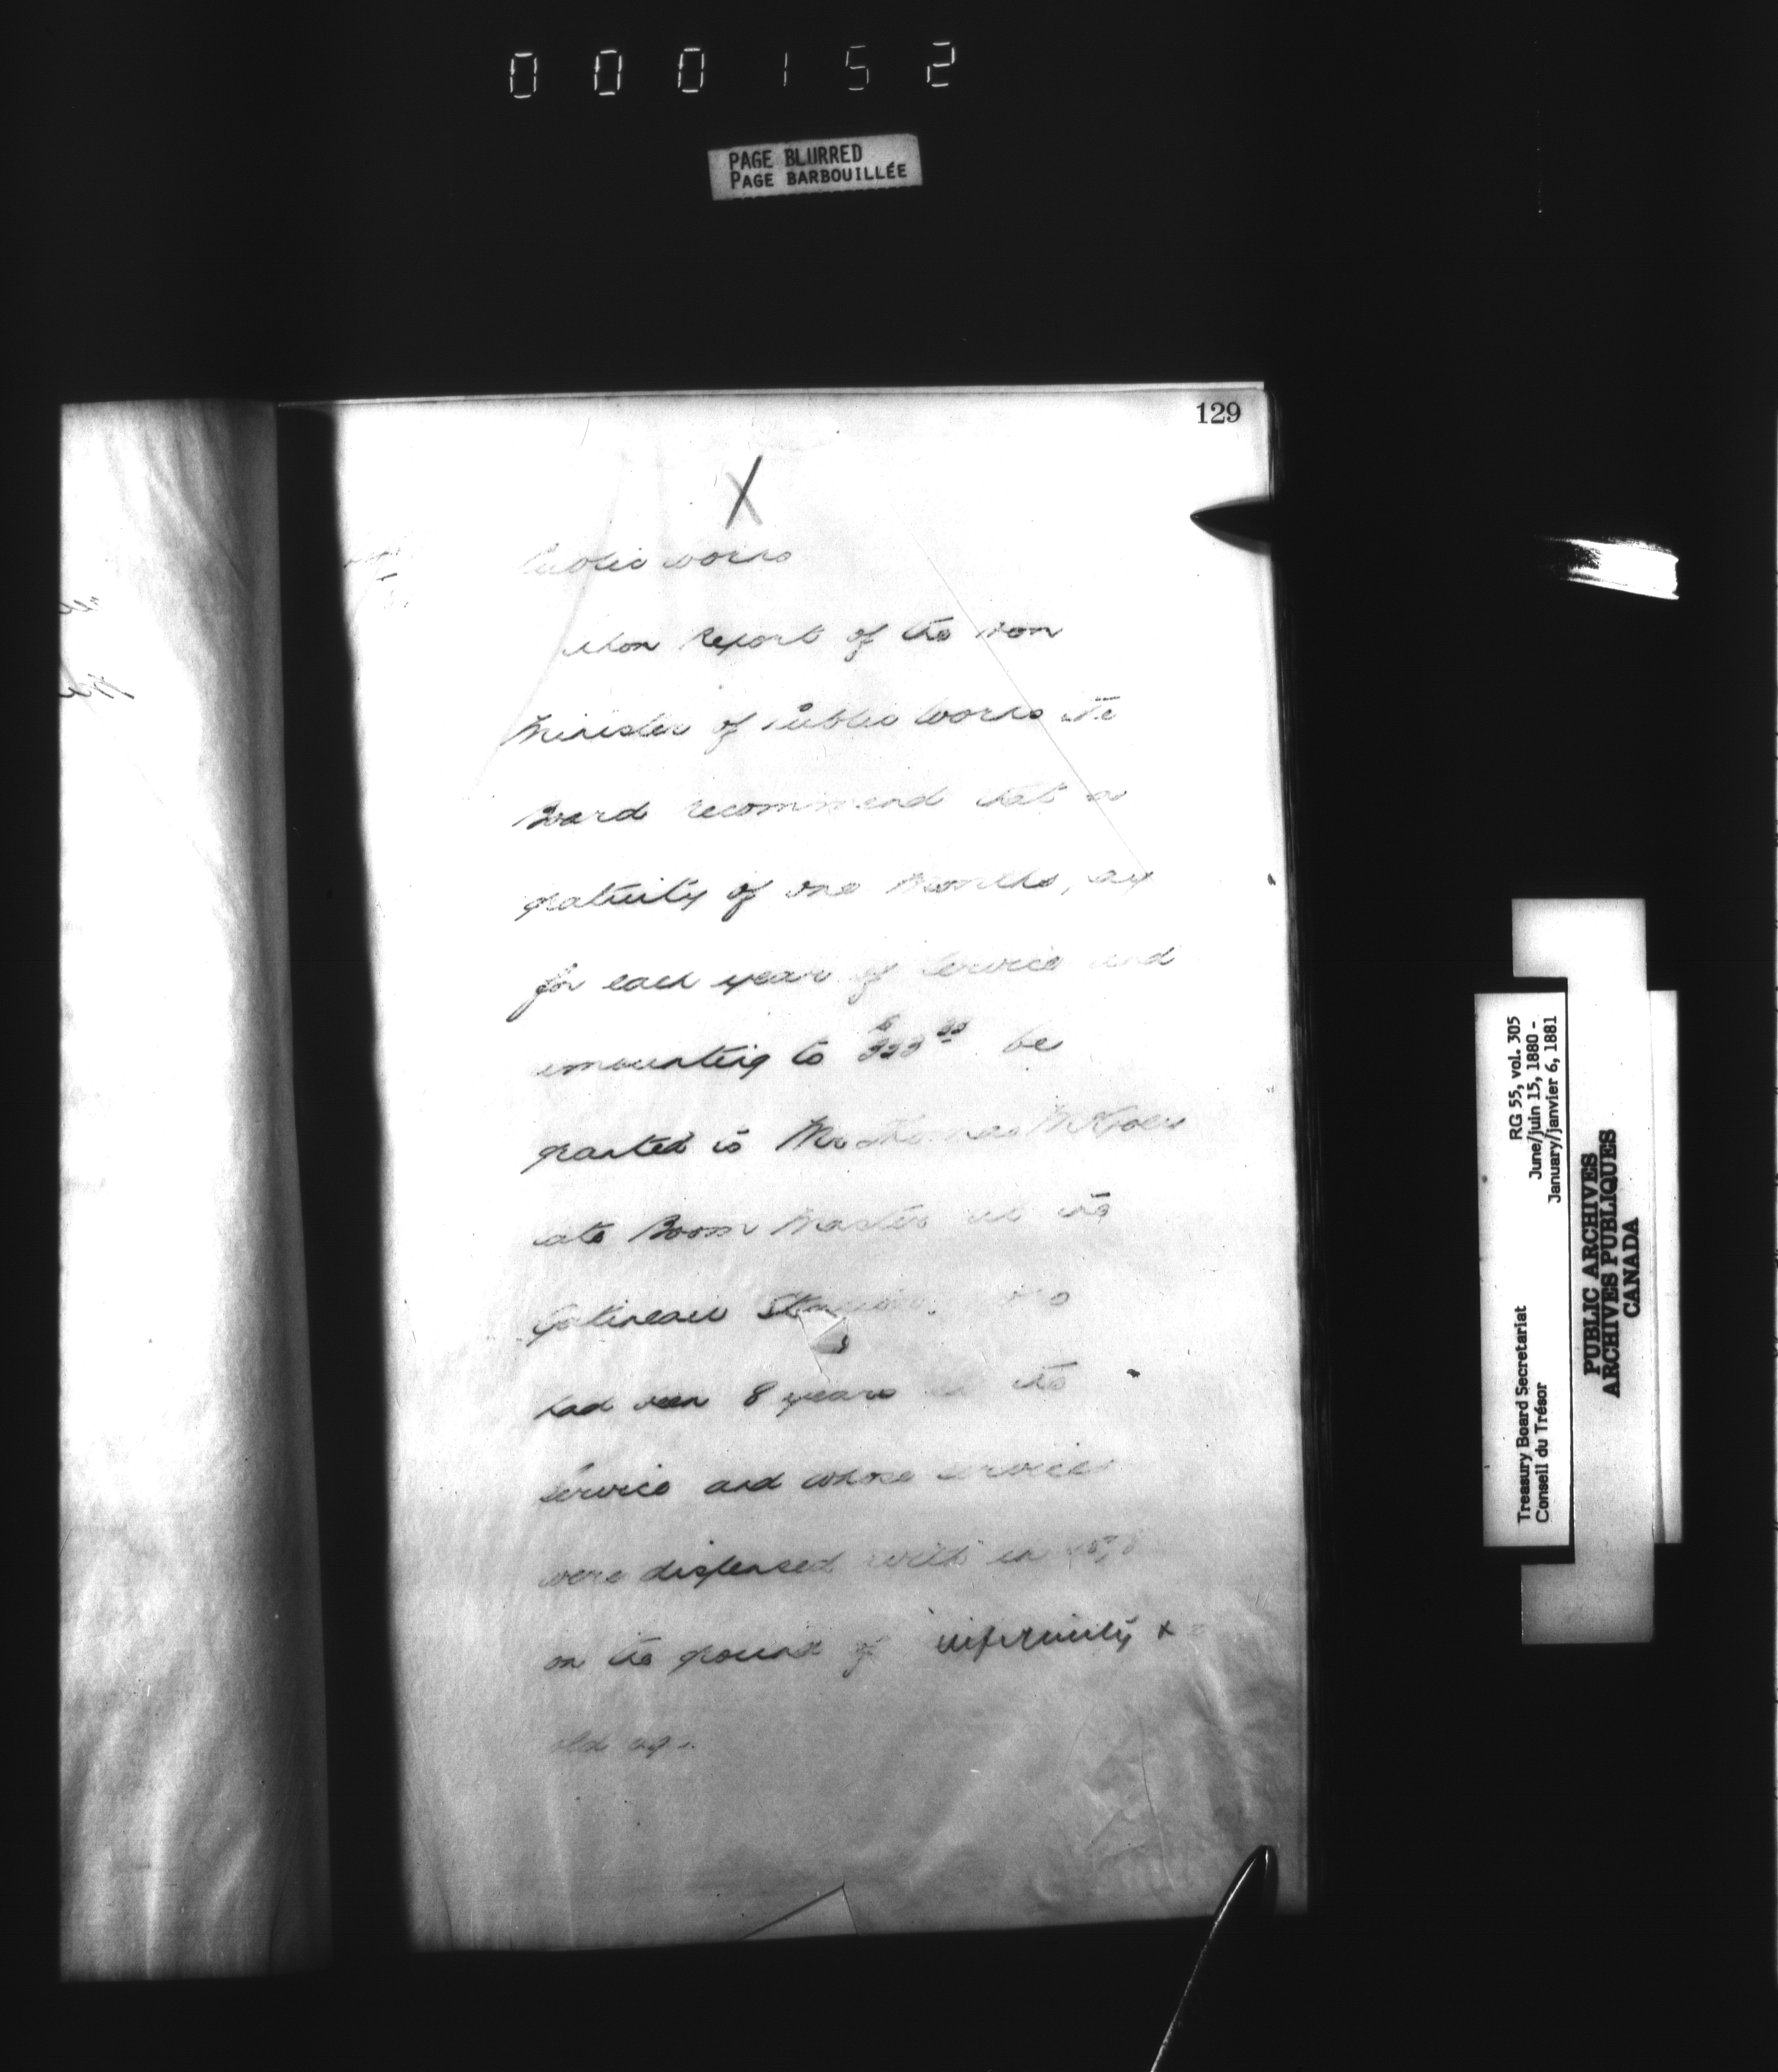 000152
PAGE BLURRED
PAGE BARBOUILLÉE
129
X
Public Works
Upon Report of the Hon
Minister of Public Works the
Board recommend that a
gratuity of one Months pay
for each year of Service and
amounting to $333 33 be
granted to Mr Thomas
late Boom Master at the
Gatineau
had been 8 years in the
Service and whose services
were dispensed with in
on the ground of infirmity &
old age.
RG 55, vol. 305
June/juin 15, 1880 -
January/janvier 6, 1881
Treasury Board Secretariat
Conseil du Trésor
PUBLIC ARCHIVES
ARCHIVES PUBLIQUES
CANADA